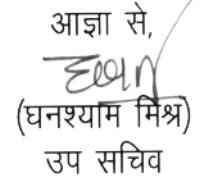 आज्ञा से,
(घनश्याम मिश्र)
उप सचिव